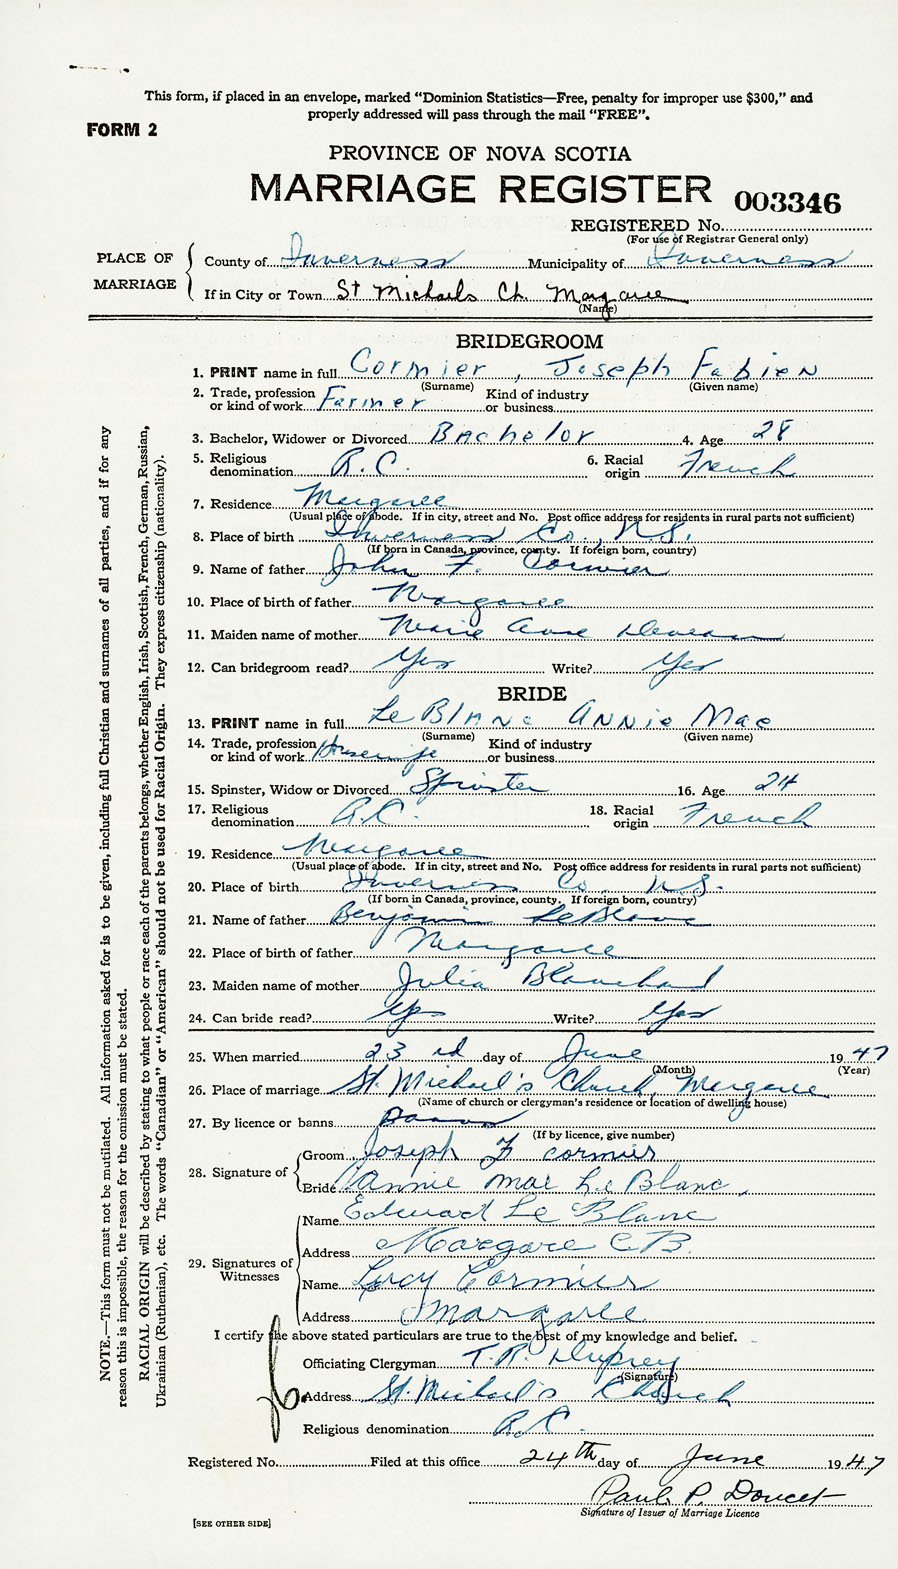 This form, if placed in an envelope, marked “Dominion Statistics—Free, penalty for improper use $300,” and
properly addressed will pass through the mail “FREE”.
FORM 2
PROVINCE OF NOVA SCOTIA
MARRIAGE REGISTER 003346
REGISTERED No.
(For use of Registrar General only)
PLACE OF MARRIAGE
County of Inverness Municipality of Inverness
If in City or Town St Michaels Ch. Margaree
(Name)
BRIDEGROOM
1. PRINT name in full Cormier, Joseph Fabien
(Surname) (Given name)
2. Trade, profession or kind of work Farmer Kind of industry or business
3. Bachelor, Widower or Divorced Bachelor 4. Age 28
5. Religious denomination R.C. 6. Racial origin French
7. Residence Margaree
(Usual place of abode. If in city, street and No. Post office address for residents in rural parts not sufficient)
8. Place of birth Inverness Co., N.S.
(If born in Canada, province, county. If foreign born, country)
9. Name of father John F. Cormier
10. Place of birth of father Margaree
11. Maiden name of mother Marie Anne Deveau
12. Can bridegroom read? Yes Write? Yes
BRIDE
13. PRINT name in full Le Blanc Annie Mae
(Surname) (Given name)
14. Trade, profession or kind of work Housewife Kind of industry or business
15. Spinster, Widow or Divorced Spinster 16. Age 24
17. Religious denomination R.C. 18. Racial origin French
19. Residence Margaree
(Usual place of abode. If in city, street and No. Post office address for residents in rural parts not sufficient)
20. Place of birth Inverness Co. N.S.
(If born in Canada, province, county. If foreign born, country)
21. Name of father Benjamin LeBlanc
22. Place of birth of father Margaree
23. Maiden name of mother Julia Blanchard
24. Can bride read? Yes Write? Yes
25. When married 23rd day of June 1947
(Month) (Year)
26. Place of marriage St. Michael's Church, Margaree
(Name of church or clergyman's residence or location of dwelling house)
27. By licence or banns Banns
(If by licence, give number)
28. Signature of
Groom Joseph F Cormier
Bride Annie Mae Le Blanc.
29. Signatures of Witnesses
Name Edward Le Blanc
Address Margaree C.B.
Name Lucy Cormier
Address Margaree
I certify the above stated particulars are true to the best of my knowledge and belief.
Officiating Clergyman T.R.
(Signature)
Address St. Michael's Church
Religious denomination R.C.
Registered No. Filed at this office 24th day of June 1947
Paul P. Doucet
Signature of Issuer of Marriage Licence
[SEE OTHER SIDE]
NOTE.—This form must not be mutilated. All information asked for is to be given, including full Christian and surnames of all parties, and if for any
reason this is impossible, the reason for the omission must be stated.
RACIAL ORIGIN will be described by stating to what people or race each of the parents belongs, whether English, Irish, Scottish, French, German, Russian,
Ukrainian (Ruthenian), etc. The words “Canadian” or “American” should not be used for Racial Origin. They express citizenship (nationality).